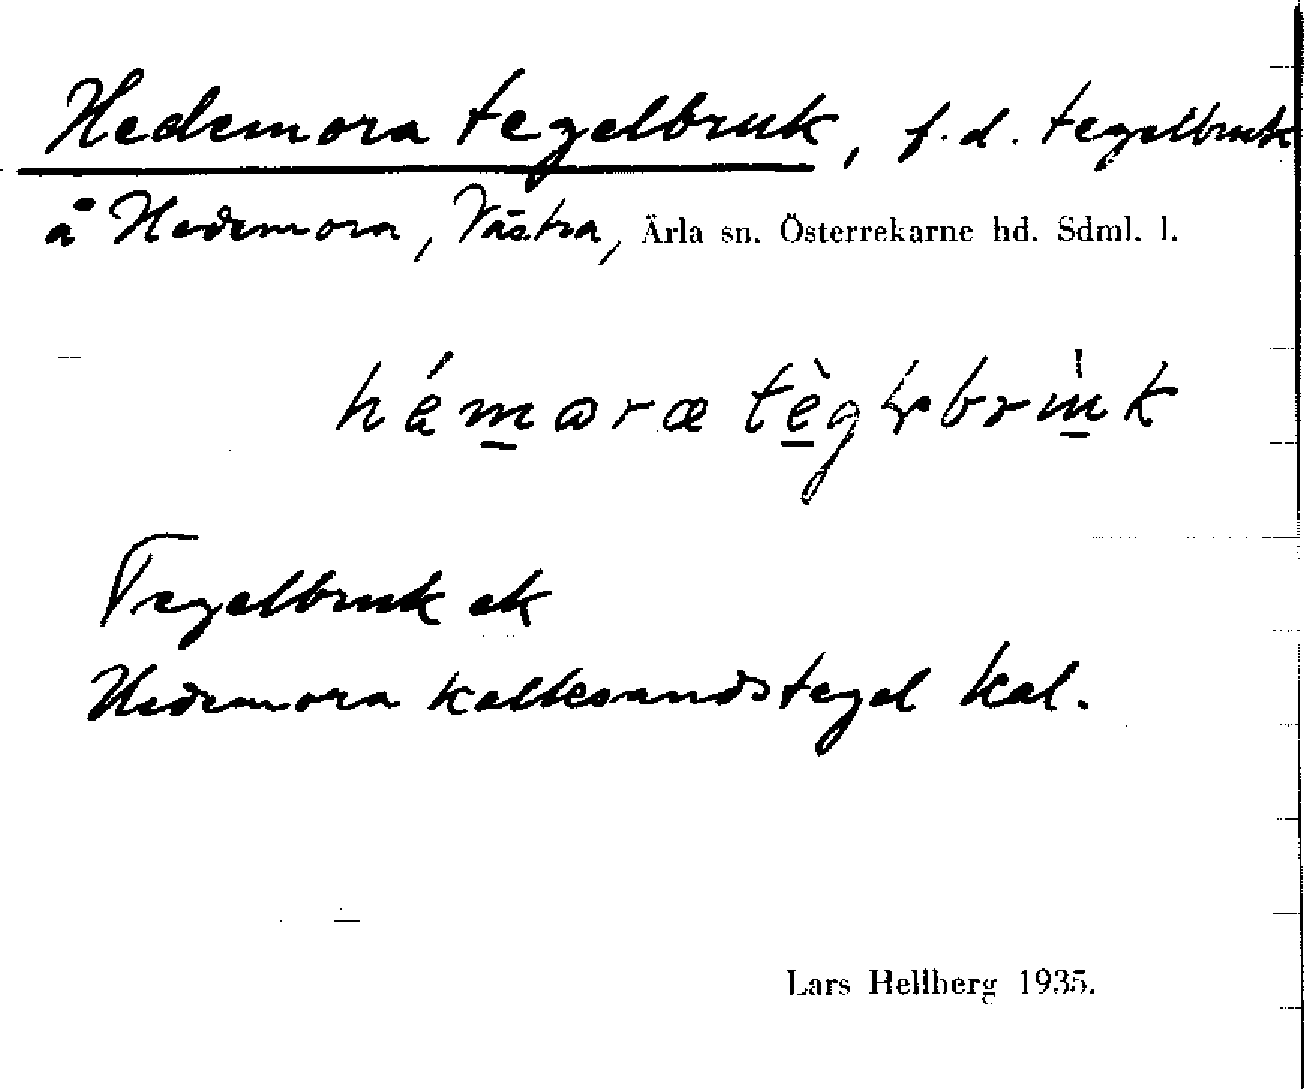 Hedemora tegelbruk, f.d. tegelbruk
å Hedemora, Västra, Ärla sn. Österrekarne hd. Sdml. l.
Tegelbruk ek
Hedemora kalksandstegel kal.
Lars Hellberg 1935.